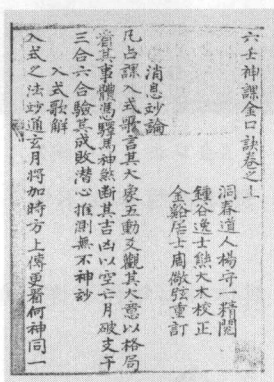 六壬神課金口訣卷之上
洞春道人楊守一精閱
鍾谷逸士熊大木校正
金谿居士周儆弦重訂
消息妙論
凡占課入式歌言其大象五動爻觀其大意以格局
看其事體憑驛馬神煞斷其吉凶以空亡月破支干
三合六合驗其成敗潜心推測無不神妙
入式歌解
入式之法妙通玄月將加時方上傳更看何神同一